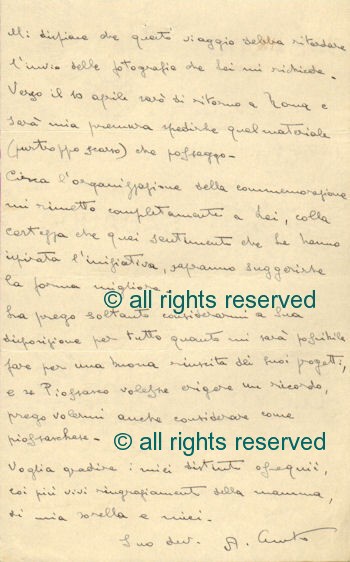 Mi dispiace che questo viaggio debba ritardare
l'invio delle fotografie che Lei mi richiede.
Verso il 10 aprile sarò di ritorno a Roma e
sarà mia premura spedirle quel materiale
(purtroppo scarso) che posseggo.
Circa l'organizzazione della commemorazione
mi rimetto completamente a Lei, colla
certezza che quei sentimenti che le hanno
ispirata l'iniziativa, sapranno suggerirle
la forma migliore.
© all rights reserved
La prego soltanto considerarmi a Sua
disposizione per tutto quanto mi sarà possibile
fare per una buona riuscita dei Suoi progetti,
e se Piossasco volesse erigere un ricordo,
prego volermi anche considerare come
piossaschese.
© all rights reserved
Voglia gradire i miei distinti ossequi,
coi più vivi ringraziamenti della mamma,
di mia sorella e miei.
Suo dev. A.